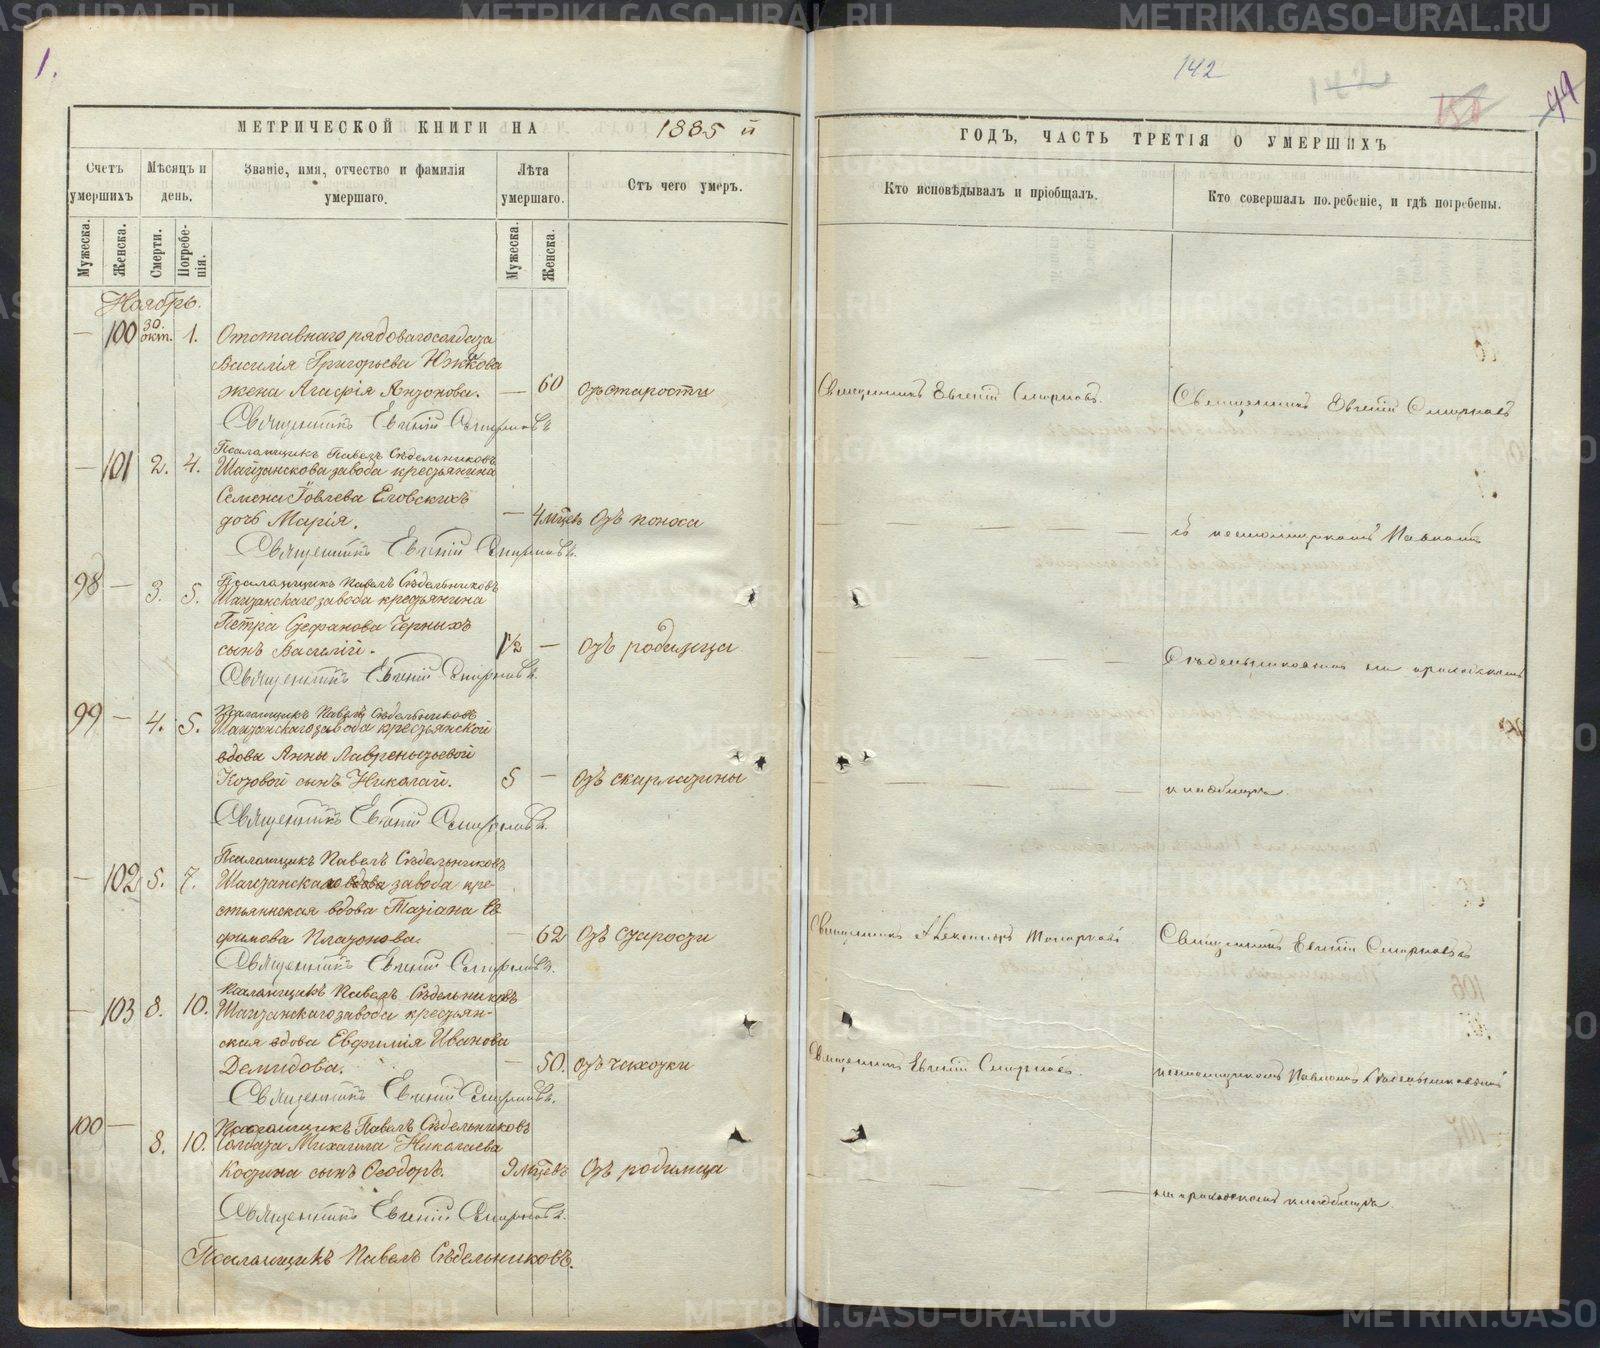 1.
МЕТРИЧЕСКОЙ КНИГИ НА 1885 й
Счетъ умершихъ
Мѣсяцъ и день.
Званіе, имя, отчество и фамилія умершаго.
Лѣта умершаго.
Отъ чего умеръ.
Мужеска.
Женска.
Смерти.
Погребенія.
Мужеска.
Женска.
Ноябрь.
— 100 30. окт. 1. Отставнаго рядоваго солдата
Василія Григорьева Южкова
жена Агафія Антонова. — 60 отъ старости
Священникъ Евгеній Смирновъ
Псаломщикъ Павелъ Сѣдельниковъ
— 101 2. 4. Шайтанскова завода крестьянина
Семена Іовлева Еговскихъ
дочь Марія. — 4 мѣцевъ Отъ поноса
Священникъ Евгеній Смирновъ.
Псаломщикъ Павелъ Сѣдельниковъ
98 — 3. 5. Шайтанскаго завода крестьянина
Петра Стефанова Черныхъ
сынъ Василій. 1½ — Отъ родимца
Священникъ Евгеній Смирновъ.
Псаломщикъ Павелъ Сѣдельниковъ
99 — 4. 5. Шайтанскаго завода крестьянской
вдовы Анны Лаврентьевой
Котовой сынъ Николай. 5 — Отъ скарлатины
Священникъ Евгеній Смирновъ.
Псаломщикъ Павелъ Сѣдельниковъ
— 102 5. 7. Шайтанскаго вдова завода кре-
стьянская вдова Татіана Ев
фимова Платонова. — 62 Отъ старости
Священникъ Евгеній Смирновъ.
Псаломщикъ Павелъ Сѣдельниковъ
— 103 8. 10. Шайтанскаго завода крестьян-
ская вдова Евфимія Иванова
Демидова. — 50. Отъ чахотки
Священникъ Евгеній Смирновъ.
Псаломщикъ Павелъ Сѣдельниковъ
100 — 8. 10. Солдата Михаила Николаева
Костина сынъ Ѳеодоръ. 9 мѣцевъ Отъ родимца
Священникъ Евгеній Смирновъ.
Псаломщикъ Павелъ Сѣдельниковъ.
142
142
44
ГОДЪ, ЧАСТЬ ТРЕТІЯ О УМЕРШИХЪ
Кто исповѣдывалъ и пріобщалъ.
Кто совершалъ погребеніе, и гдѣ погребены.
Священникъ Евгеній Смирновъ. Священникъ Евгеній Смирновъ
съ псаломщикомъ Павломъ
Сѣдельниковымъ на приходскомъ
кладбищѣ.
Священникъ Александръ Священникъ Евгеній Смирновъ съ
Священникъ Евгеній Смирновъ. псаломщикомъ Павломъ Сѣдельниковымъ
на приходскомъ кладбищѣ.
METRIKI.GASO-URAL.RU